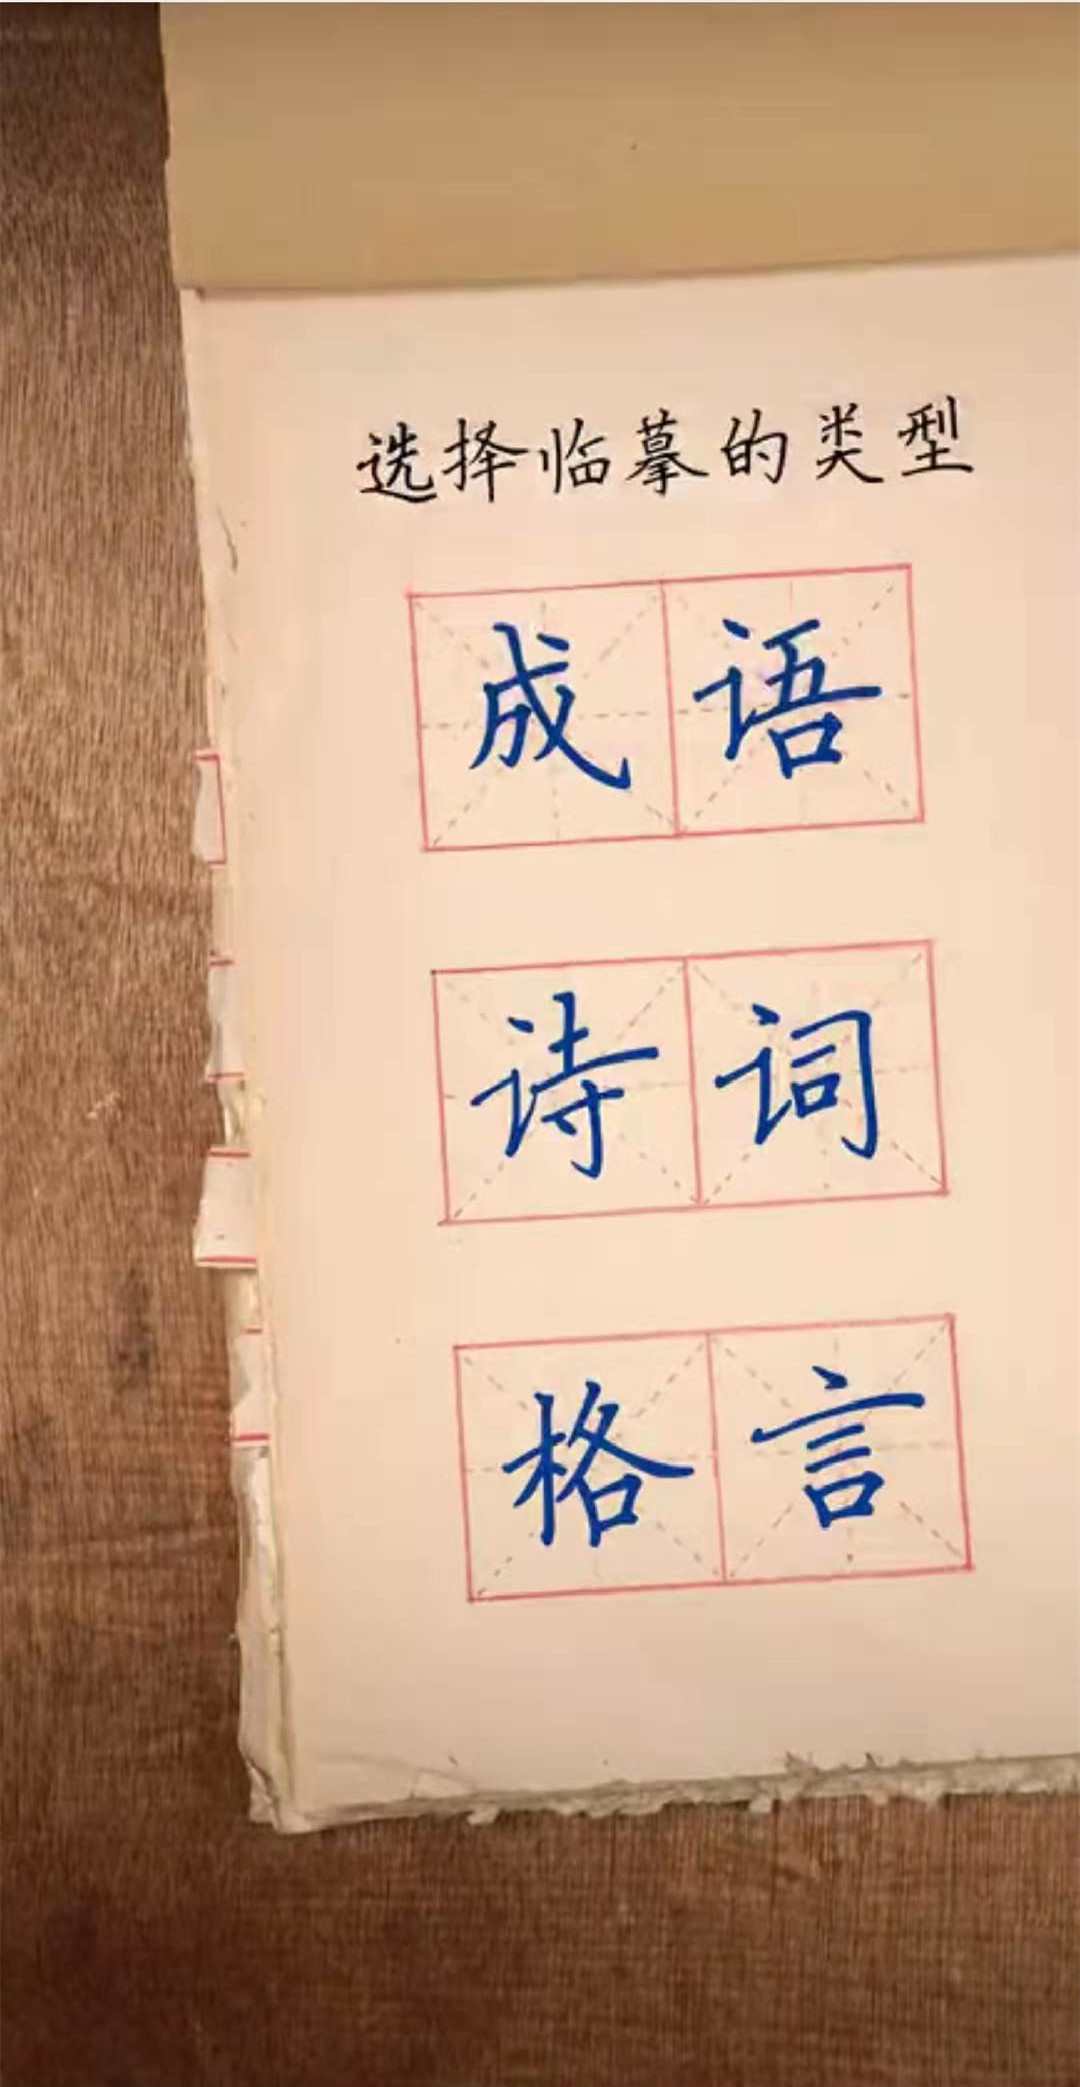 选择临摹的类型
成语
诗词
格言